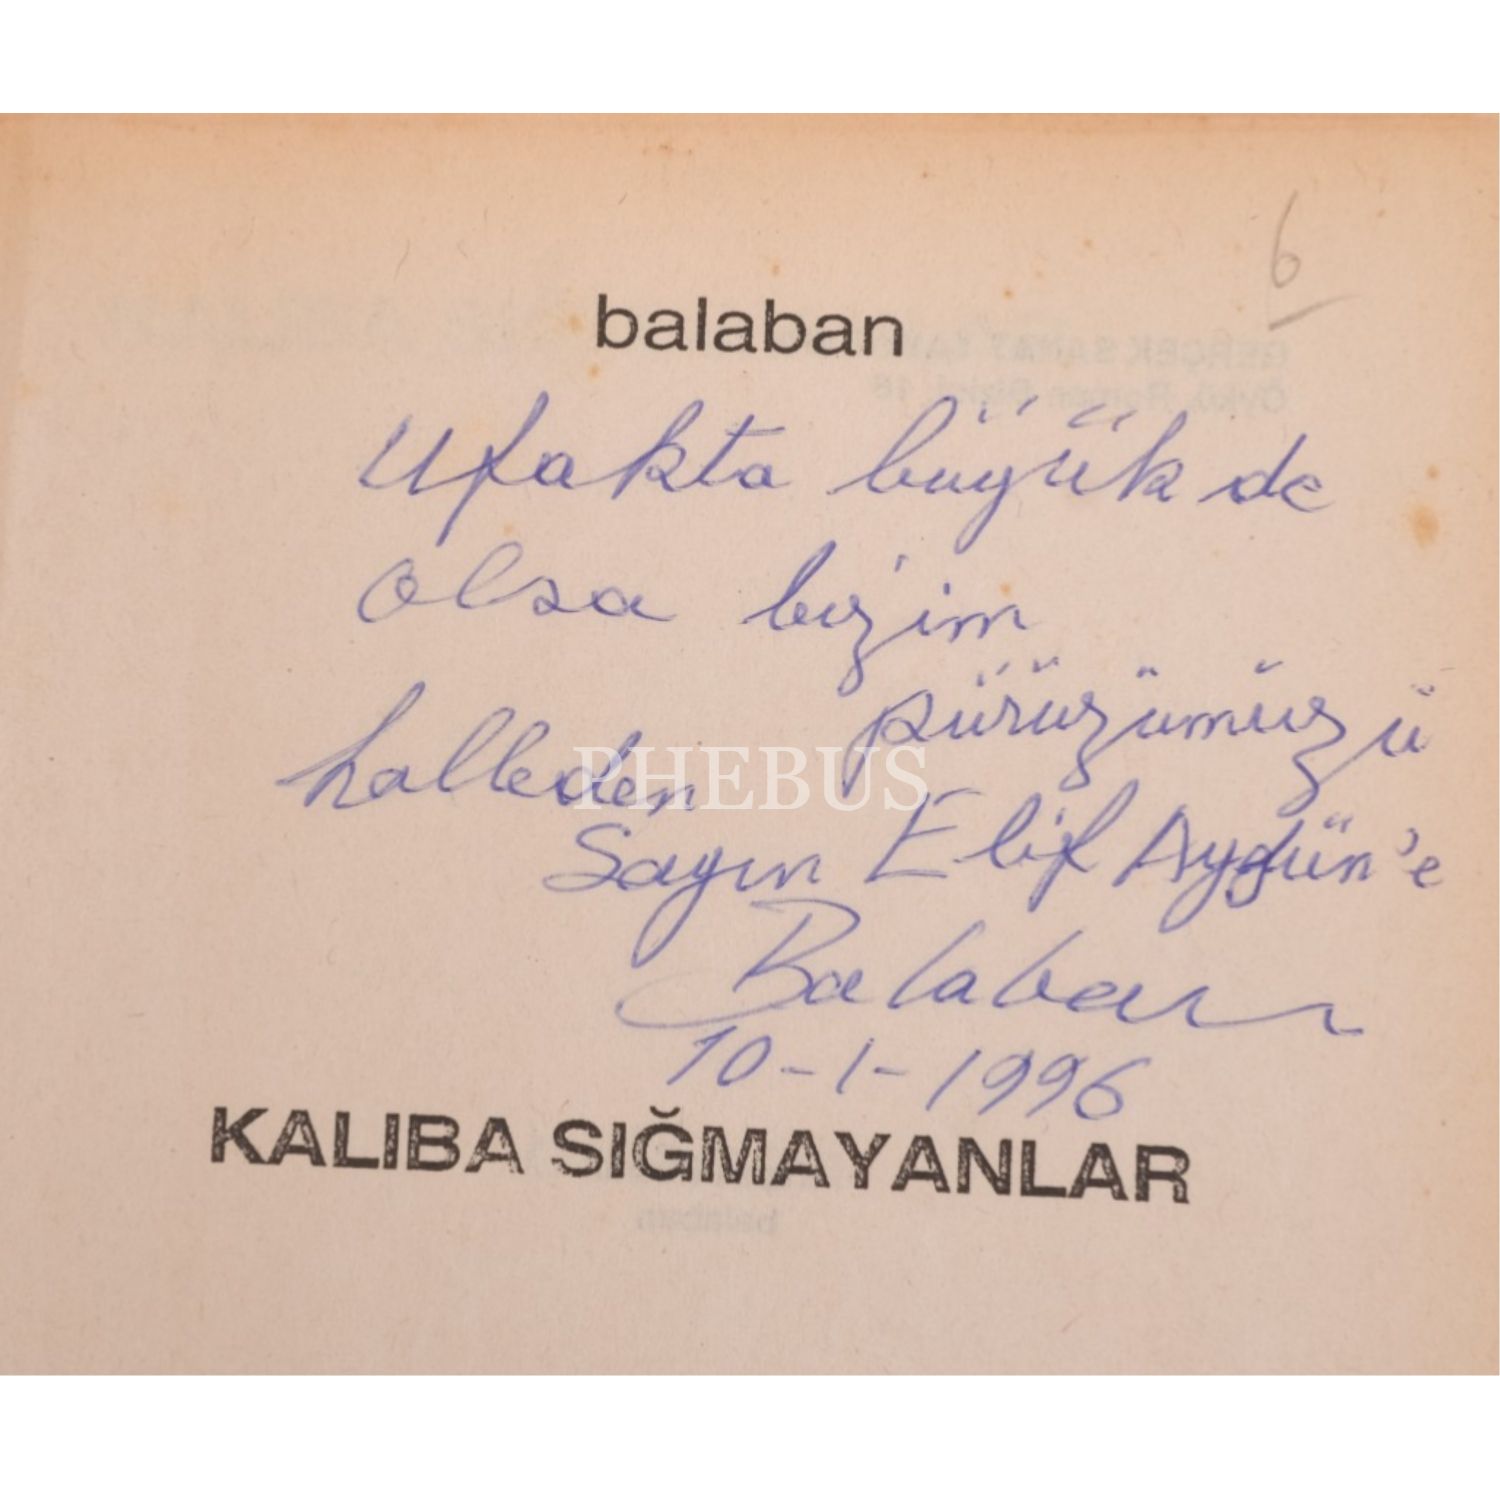 6
balaban
Ufakta büyük de
olsa bizim
pürüzümüzü
halleden
PHEBUS
Sayın Elif Aygün'e
Balaban
10-1-1996
KALIBA SIĞMAYANLAR